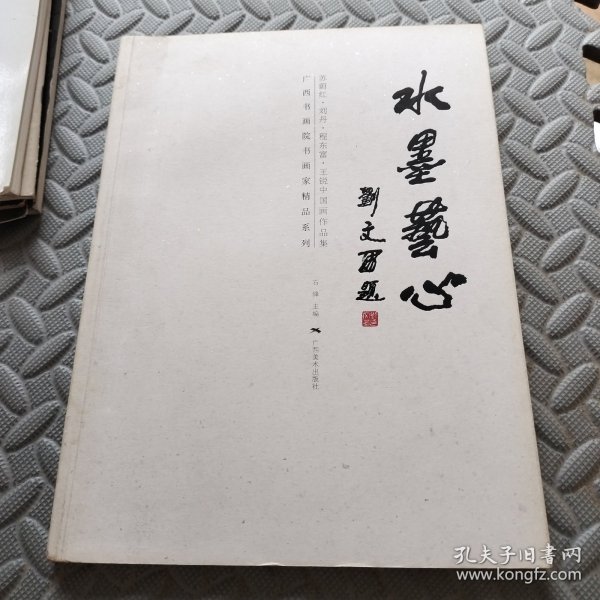 水墨藝心
劉文西題
苏蔚红·刘丹·程东富·王锐中国画作品集
广西书画院书画家精品系列
石锋 主编
广西美术出版社
孔夫子旧书网
www.kongfz.com